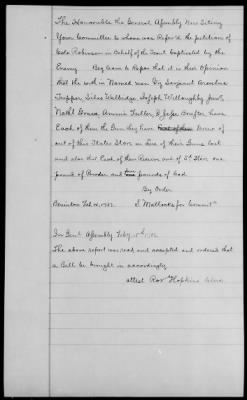 The Honourable the General Assembly Now Siting
Your Committee to whom was Refer'd the petition of
Cols Robinson in Behalf of the Scout Captivated by the
Enemy Beg leave to Repor that it is their Opinion
that the with in Named men Viz Sarjeant
Silas Walbridge Joseph Willoughby Junr
Nathl Amnie Fuller & Jesse have
Each of them the Gun they have
out of this States Stors in Lieu of their Guns Lost
and also that Each of them Receive out of Sd Stors one
pound of Powder and pounds of Lead
By Order
Benington Feb 1782 S Mattocks for Committ
In Genl Assembly Feby 1782
The above report was read and accepted and ordered that
a Bill be brought in accordingly
attest Ros Hopkins Clerk